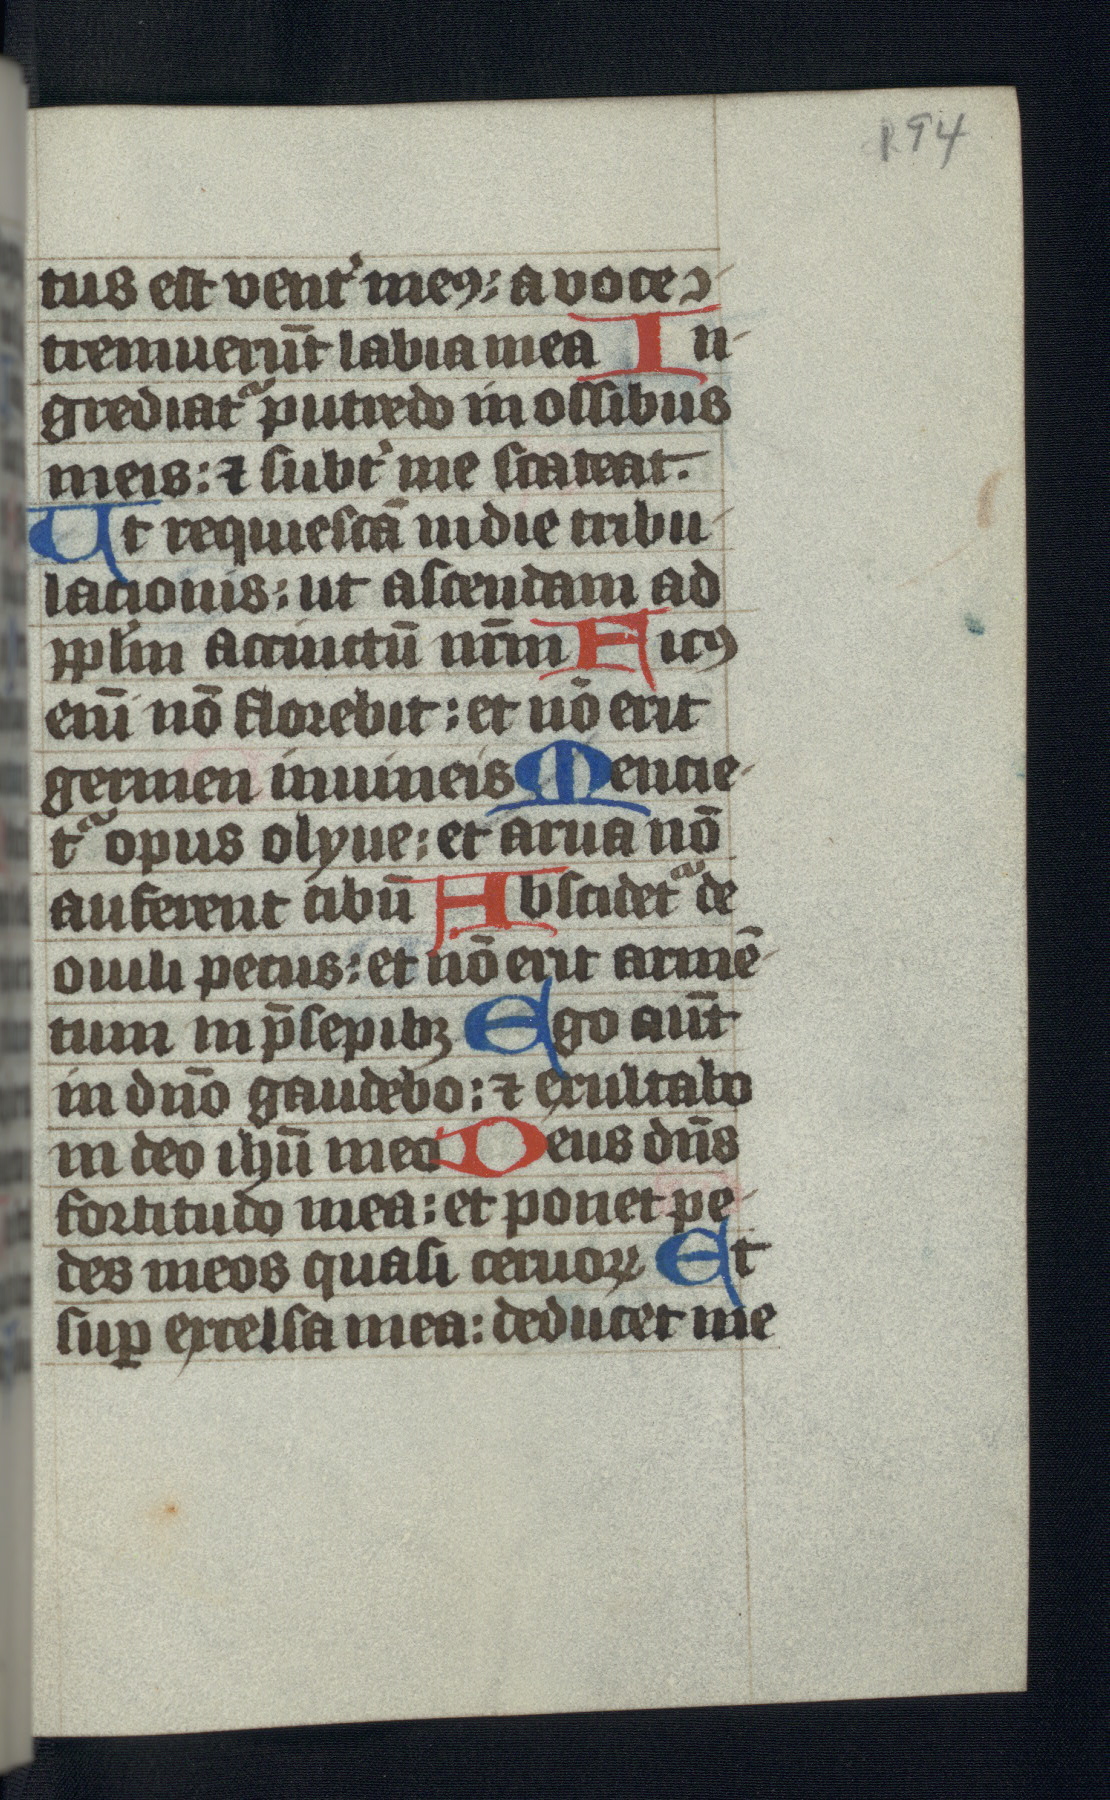 194
tus est vent᷑ meꝯ: a voce ↄ-
tremuerūt labia mea In-
grediatᷓ putredo in ossibus
meis: ⁊ subt᷑ me scateat.
Ut requiescā in die tribu-
lacionis: ut ascendam ad
pplm̄ accinctū nr̄m Ficꝯ
enī nō florebit: et nō erit
germen in vineis Mencie-
tᷓ opus olyue: et arua nō
auferent cibū Abscidetᷓ de
ouili pecus: et nō erit armē-
tum in p̄sepibꝫ Ego aūt
in dn̄o gaudebo: ⁊ exultabo
in deo ihū meo Deus dn̄s
fortitudo mea: et ponet pe-
des meos quasi ceruoꝝ Et
suꝑ excelsa mea: deducet me